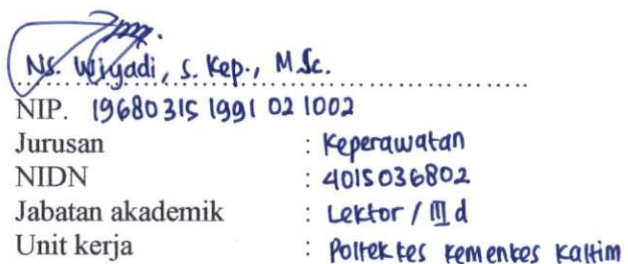 Ns. Wiyadi, S. Kep., M.Sc.
NIP. 19680315 1991 02 1002
Jurusan : Keperawatan
NIDN : 4015036802
Jabatan akademik : Lektor / III d
Unit kerja : Poltekkes Kemenkes Kaltim